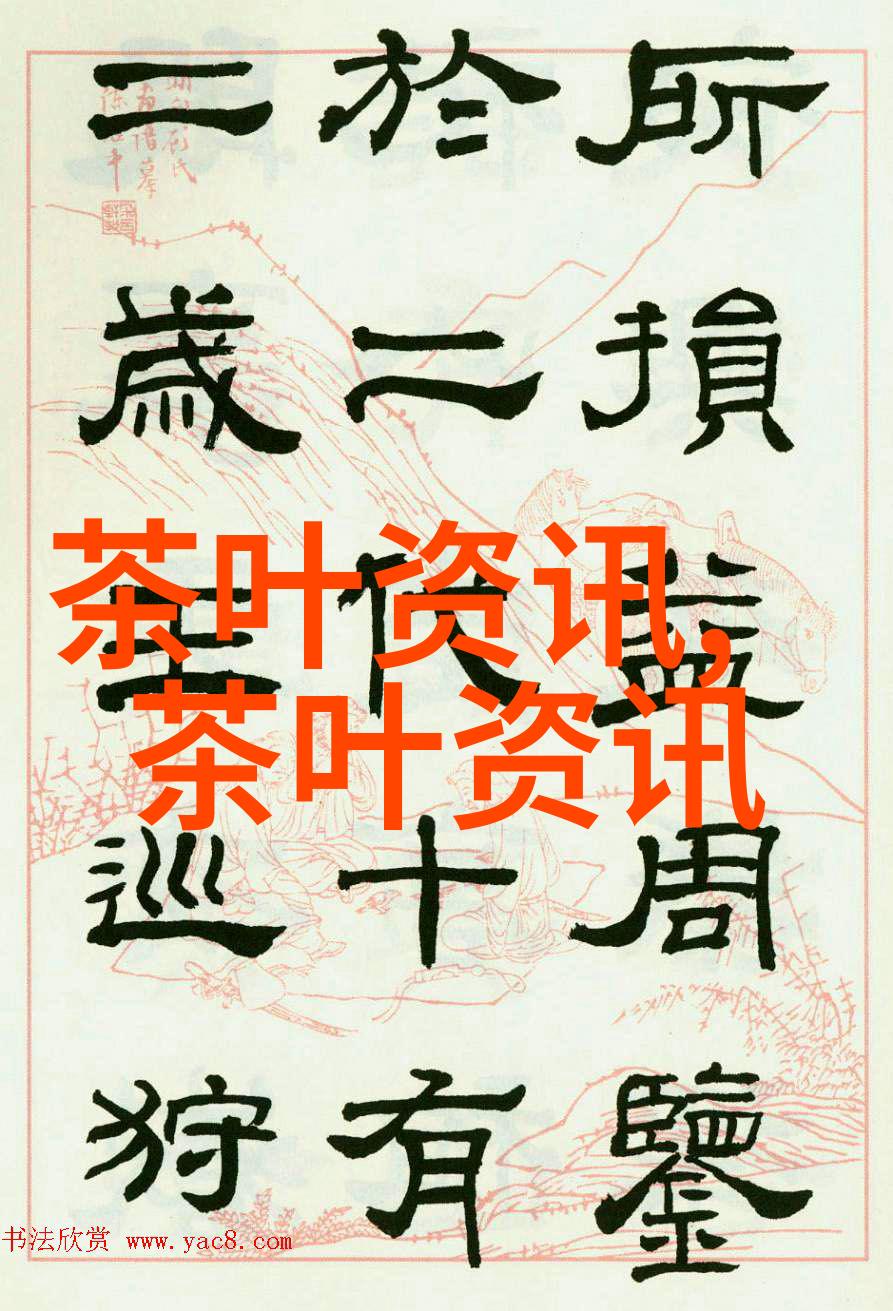 所損益周鑒
於二代十有
二歲王巡狩
茶叶资讯,
茶叶资讯
书法欣赏 www.yac8.com